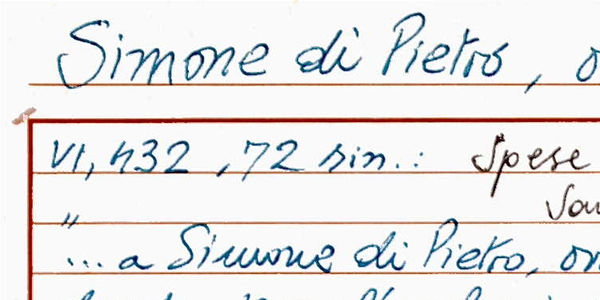 Simone di Pietro, o
VI, 432, 72 sin.: Spese
"
...a Simone di Pietro, or